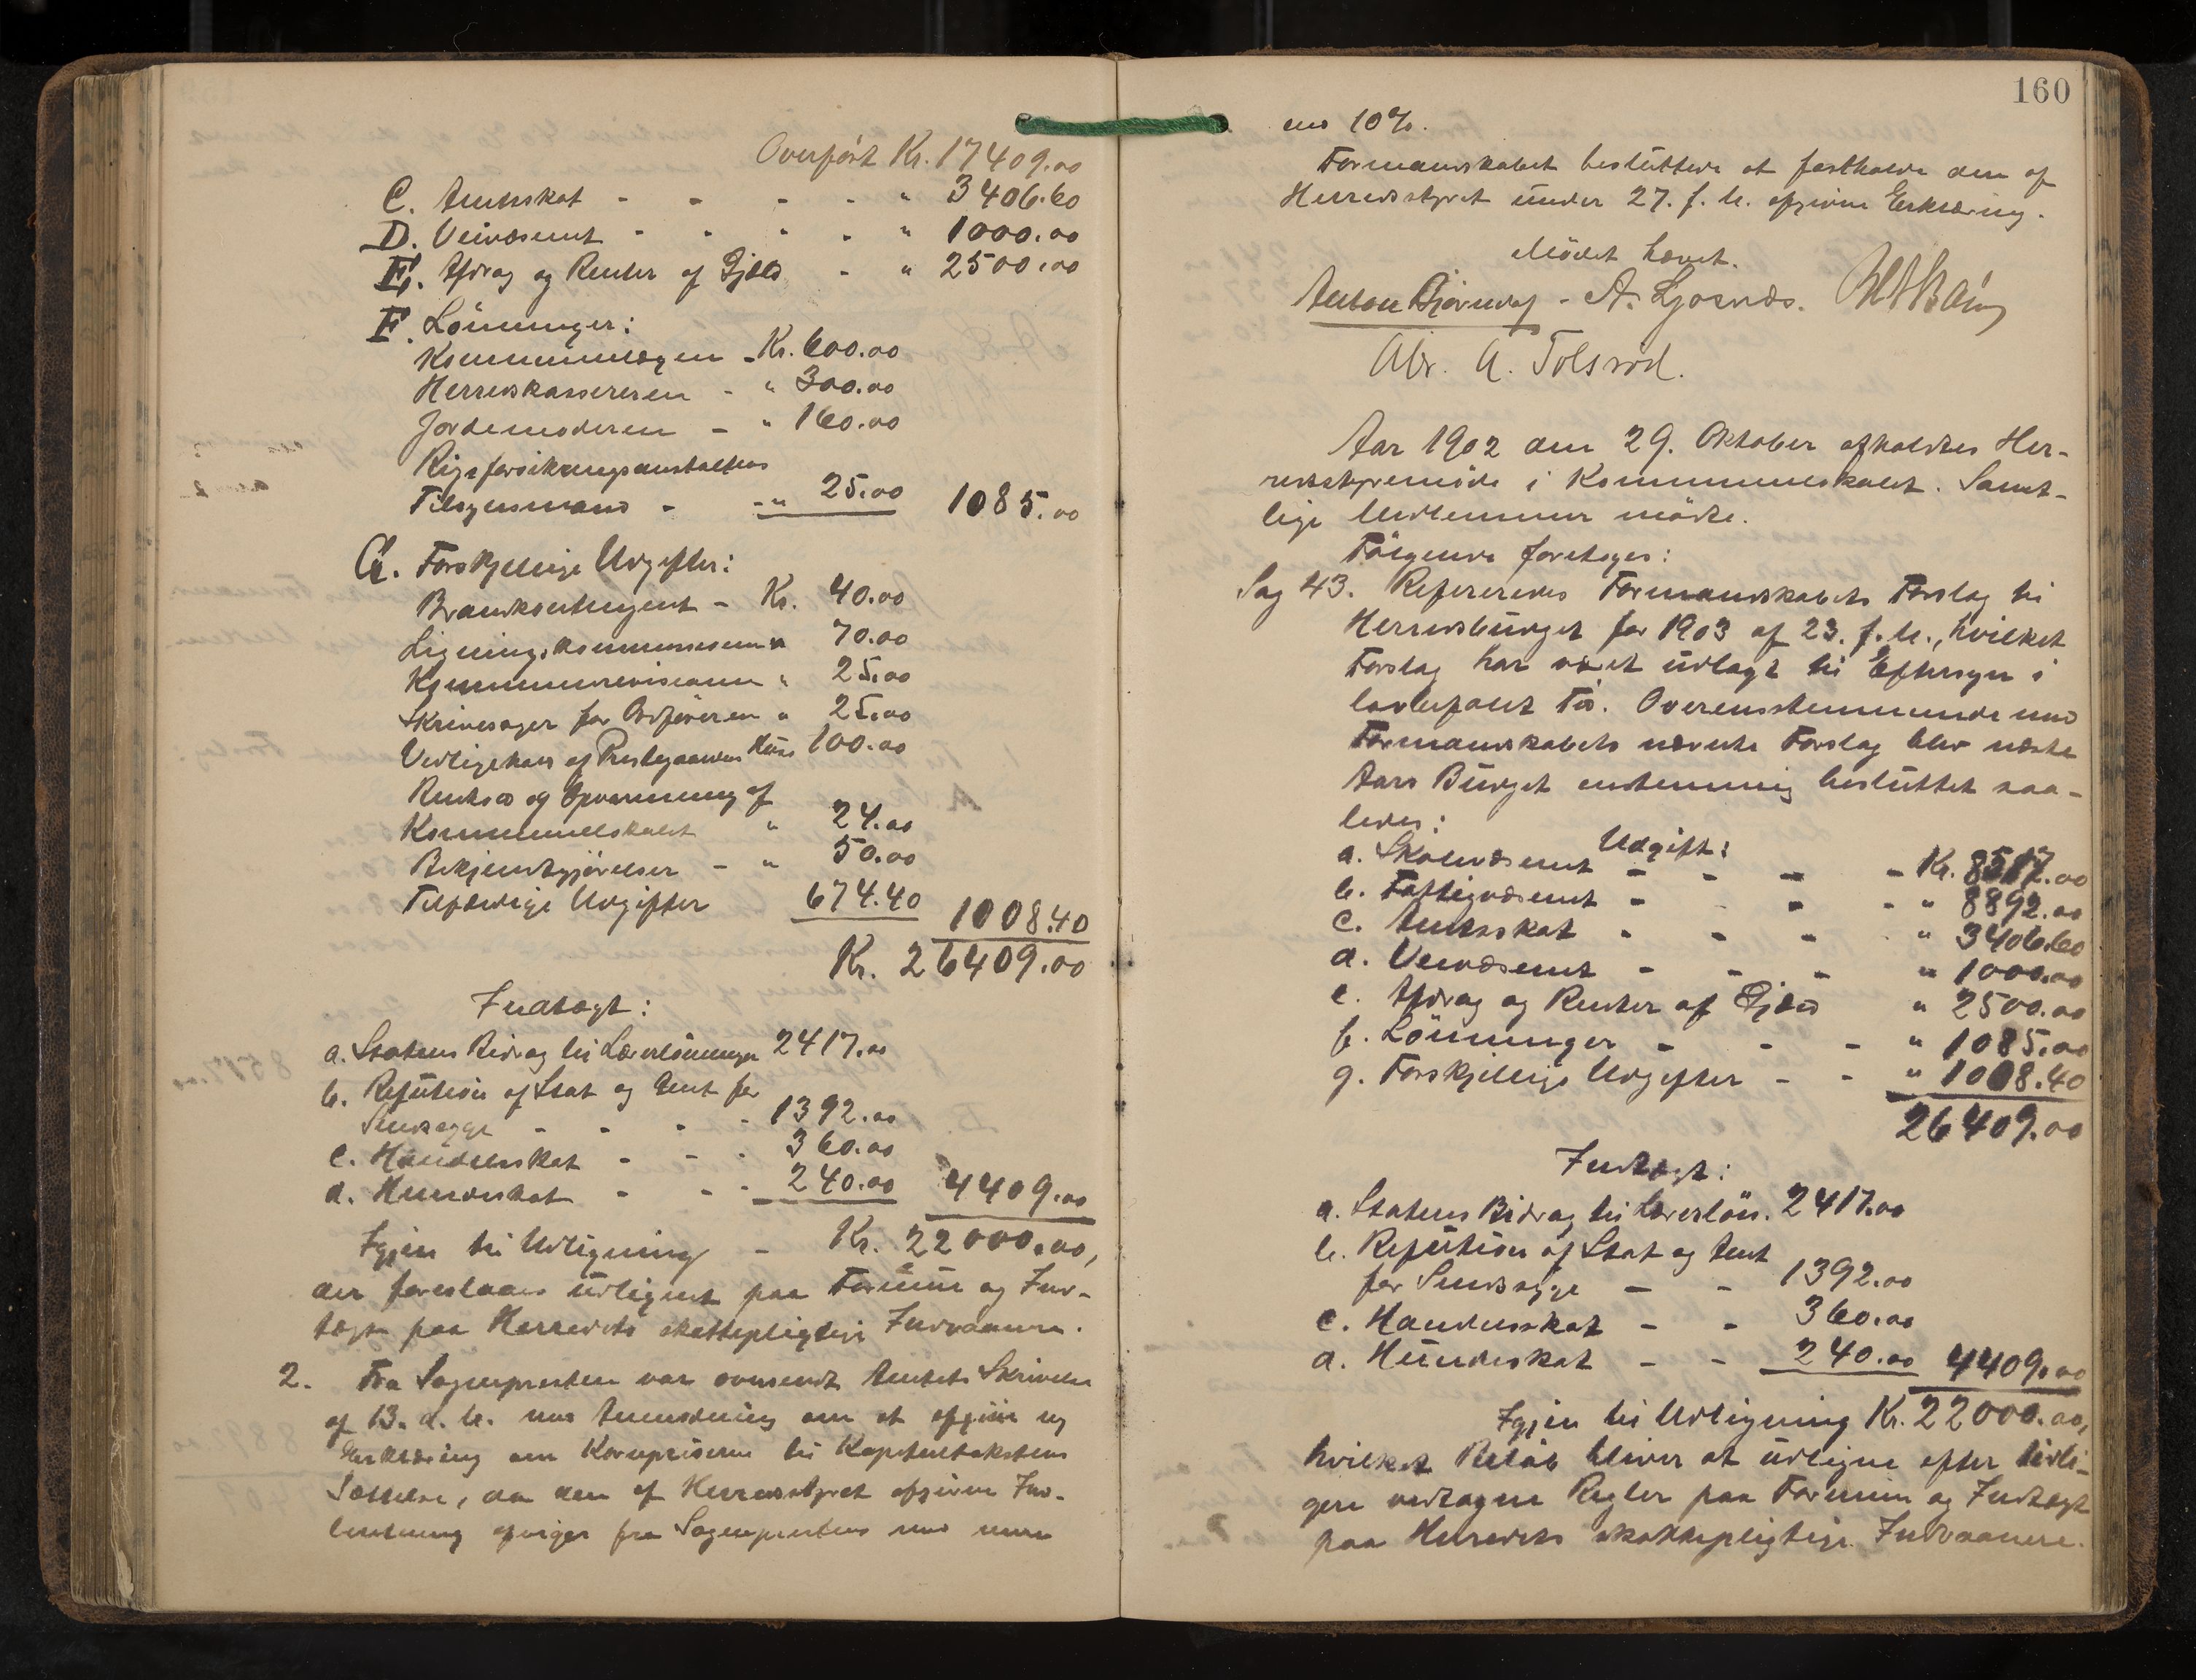 Overført Kr. 17409.00
C. Amtsskat - - - - " 3406.60
D. Veivæsenet - - - - " 1000.00
E. Afdrag og Renter af Gjæld - " 2500.00
F. Lönninger:
Kommunelægen - Kr. 600.00
Herredskassereren - " 300.00
Jordemoderen - " 160.00
Rigsforsikringsanstaltens
Tilsynsmand - - " 25.00 1085.00
G. Forskjellige Udgifter:
Brandkontingent - Kr. 40.00
Ligningskommissionen " 70.00
Kommunerevisionen " 25.00
Skrivesager for Ordføreren " 25.00
Vedligehold af Prestegaardens Huse 100.00
Renhold og Opvarmning af
Kommunelokalet " 24.00
Bekjendtgjörelser - " 50.00
Tilfældige Udgifter 674.40 1008.40
Kr. 26409.00
Indtægt:
a. Statens Bidrag til Lærerlönninger 2417.00
b. Refusion af Stat og Amt for
Sindssyge - - - - 1392.00
c. Handelsskat - - - 360.00
d. Hundeskat - - - 240.00 4409.00
Igjen til Udligning - Kr. 22000.00,
der foreslaaes udlignet paa Formue og Ind-
tægt paa Herredets skattepligtige Indvaanere.
2. Fra Sognepresten var oversendt Amtets Skrivelse
af 13. d. M. med Anmodning om at afgive ny
Erklæring om Kornpriserne til Kapitelstakstens
Sættelse, da den af Herredsstyret afgivne Ind-
beretning afviger fra Sogneprestens med mere
160
end 10%.
Formandskabet besluttede at fastholde den af
Herredsstyret under 27. f. M. afgivne Erklæring.
Mödet hævet.
Anton - A. Ljosnæs.
Abr. A. Tolsrød.
Aar 1902 den 29. Oktober afholdtes Her-
redsstyremöde i Kommunelokalet. Samt-
lige Medlemmer mödte.
Fölgende foretoges:
Sag 43. Refereredes Formandskabets Forslag til
Herredsbudget for 1903 af 23. f. M., hvilket
Forslag har været udlagt til Eftersyn i
lovbefalet Tid. Overensstemmende med
Formandskabets nævnte Forslag blev næste
Aars Budget enstemmig besluttet saa-
ledes:
Udgift:
a. Skolevæsenet - - - - Kr. 8517.00
b. Fattigvæsenet - - - - " 8892.00
c. Amtsskat - - - " 3406.60
d. Veivæsenet - - - " 1000.00
e. Afdrag og Renter af Gjæld " 2500.00
f. Lönninger - - - " 1085.00
g. Forskjellige Udgifter - - " 1008.40
26409.00
Indtægt:
a. Statens Bidrag til Lærerlön. 2417.00
b. Refusion af Stat og Amt
for Sindssyge - - 1392.00
c. Handelsskat - - 360.00
d. Hundeskat - - 240.00 4409.00
Igjen til Udligning Kr. 22000.00,
hvilket Belöb bliver at udligne efter tidli-
gere vedtagne Regler paa Formue og Indtægt
paa Herredets skattepligtige Indvaanere.